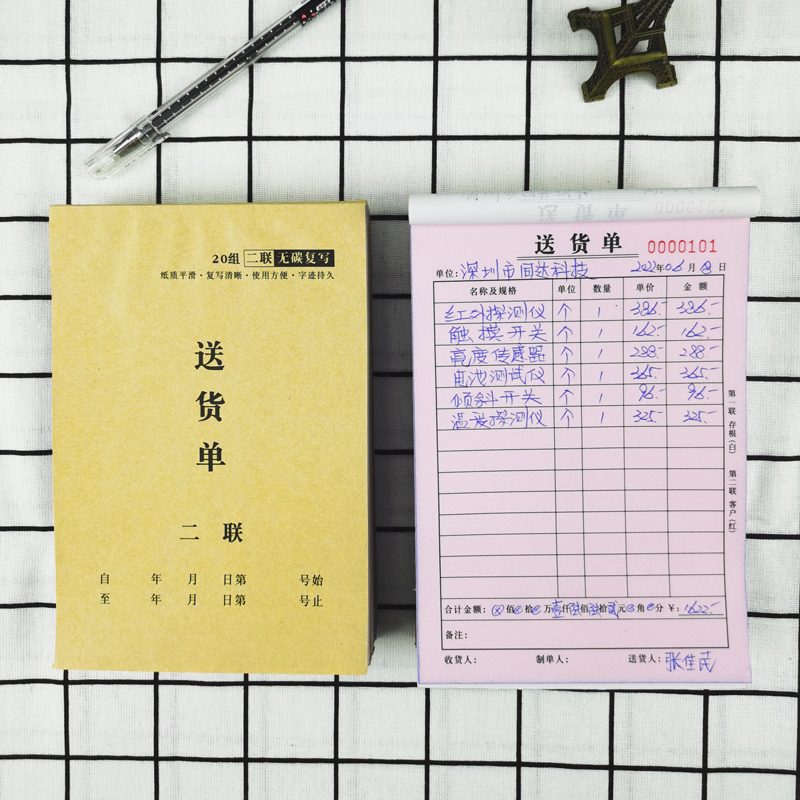 20组 二联 无碳复写
纸质平滑·复写清晰·使用方便·字迹持久
送货单
二联
自 年 月 日第 号始
至 年 月 日第 号止
送货单 0000101
单位: 深圳市同达科技 2022年06月 日
名称及规格 单位 数量 单价 金额
红外探测仪 个 1 386.- 386.-
触摸开关 个 1 162.- 162.-
亮度传感器 个 1 288.- 288.-
电池测试仪 个 1 365.- 365.-
倾斜开关 个 1 96.- 96.-
温度探测仪 个 1 325.- 325.-
第一联 存根(白) 第二联 客户(红)
合计金额: ⊗佰 拾 万壹仟陆佰 拾贰元 角 分 ¥: 1622.-
备注:
收货人: 制单人: 送货人: 张佳民